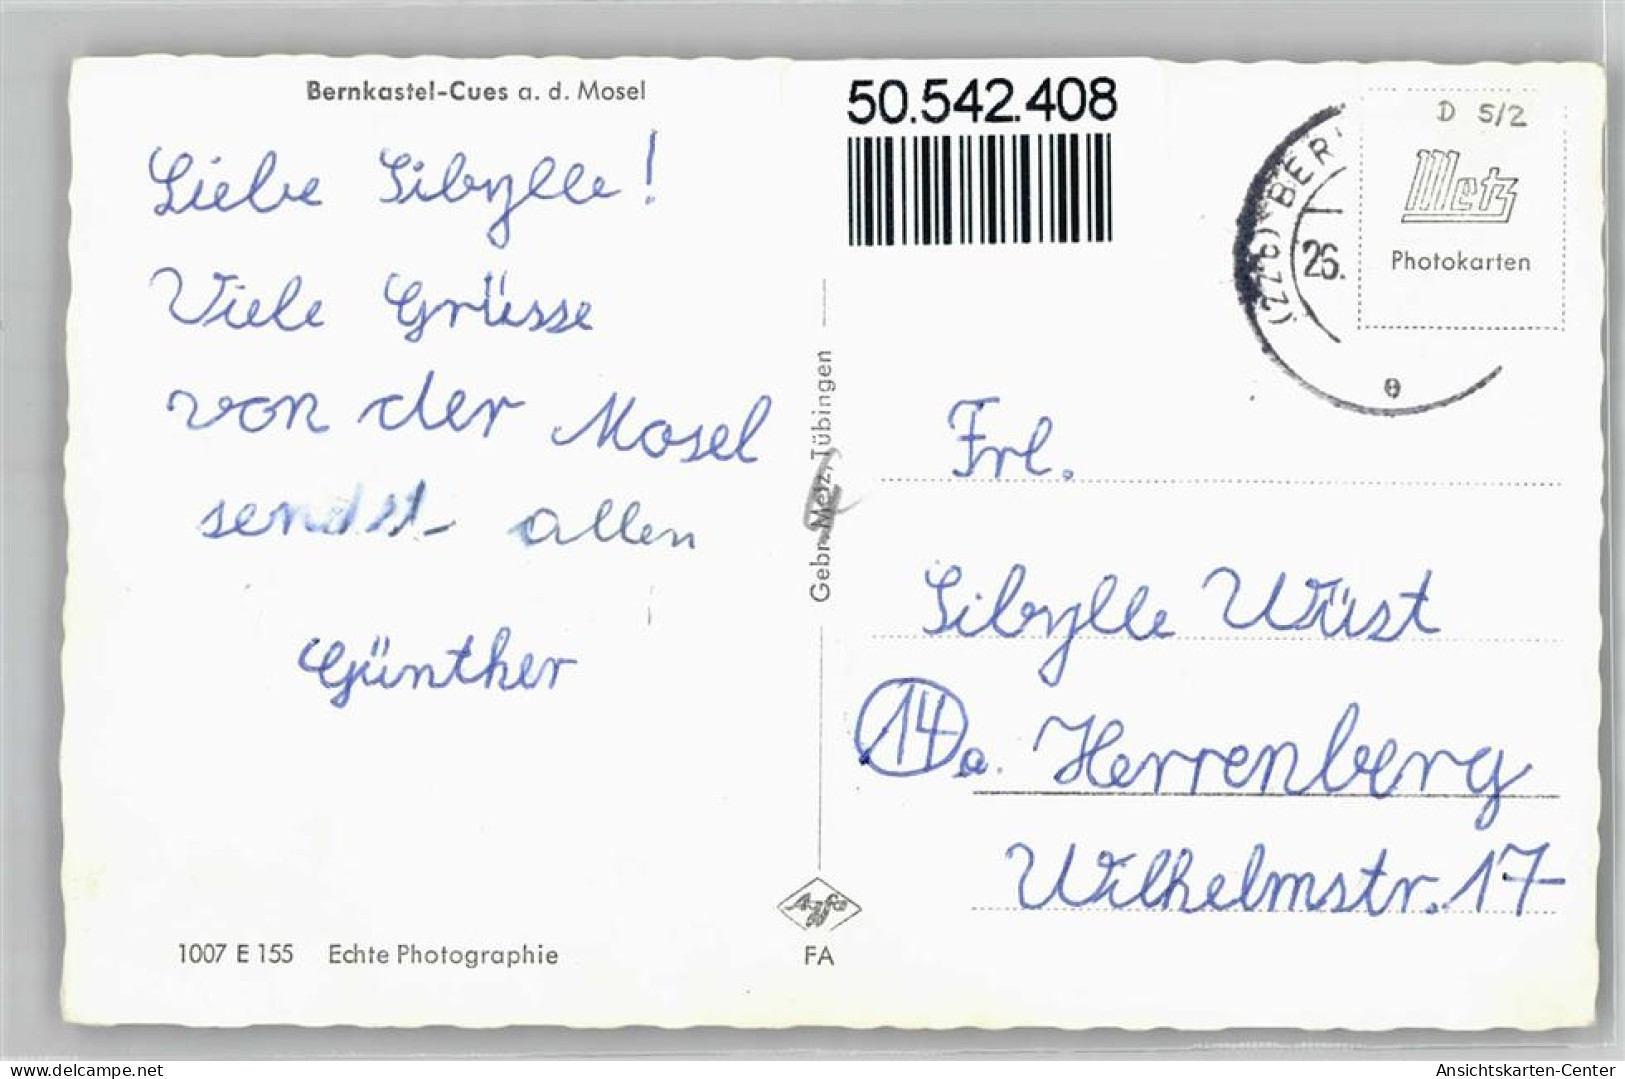 Bernkastel-Cues a. d. Mosel
Liebe Sibylle!
Viele Grüsse
von der Mosel
sendet allen
Günther
1007 E 155 Echte Photographie
Gebr. Metz, Tübingen
Agfa
FA
50.542.408
(22c) BER
26.
e
D 5/2
Metz
Photokarten
Frl.
Sibylle Wüst
14 a. Herrenberg
Wilhelmstr. 17
www.delcampe.net
Ansichtskarten-Center